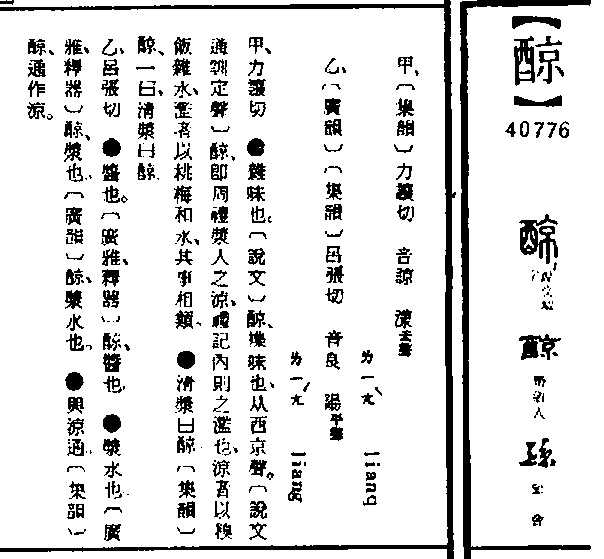 【醇】
40776
甲、〔集韻〕力讓切 音諒 漾去聲
ㄌㄧㄤˋ liang
乙、〔廣韻〕〔集韻〕呂張切 音良 陽平聲
ㄌㄧㄤˊ liang
甲、力讓切 ●雜味也。〔說文〕醇、襍味也、从酉京聲。〔說文
通訓定聲〕醇、即周禮漿人之涼、禮記內則之濫也、涼者以糗
飯雜水、濫者以桃梅和水、其事相類。 ●清漿曰醇〔集韻〕
醇、一曰清漿曰醇。
乙、呂張切 ●醬也。〔廣雅、釋器〕醇、醬也。 ●漿水也〔廣
雅、釋器〕醇、漿也。〔廣韻〕醇、漿水也。 ●與涼通〔集韻〕
醇、通作涼。